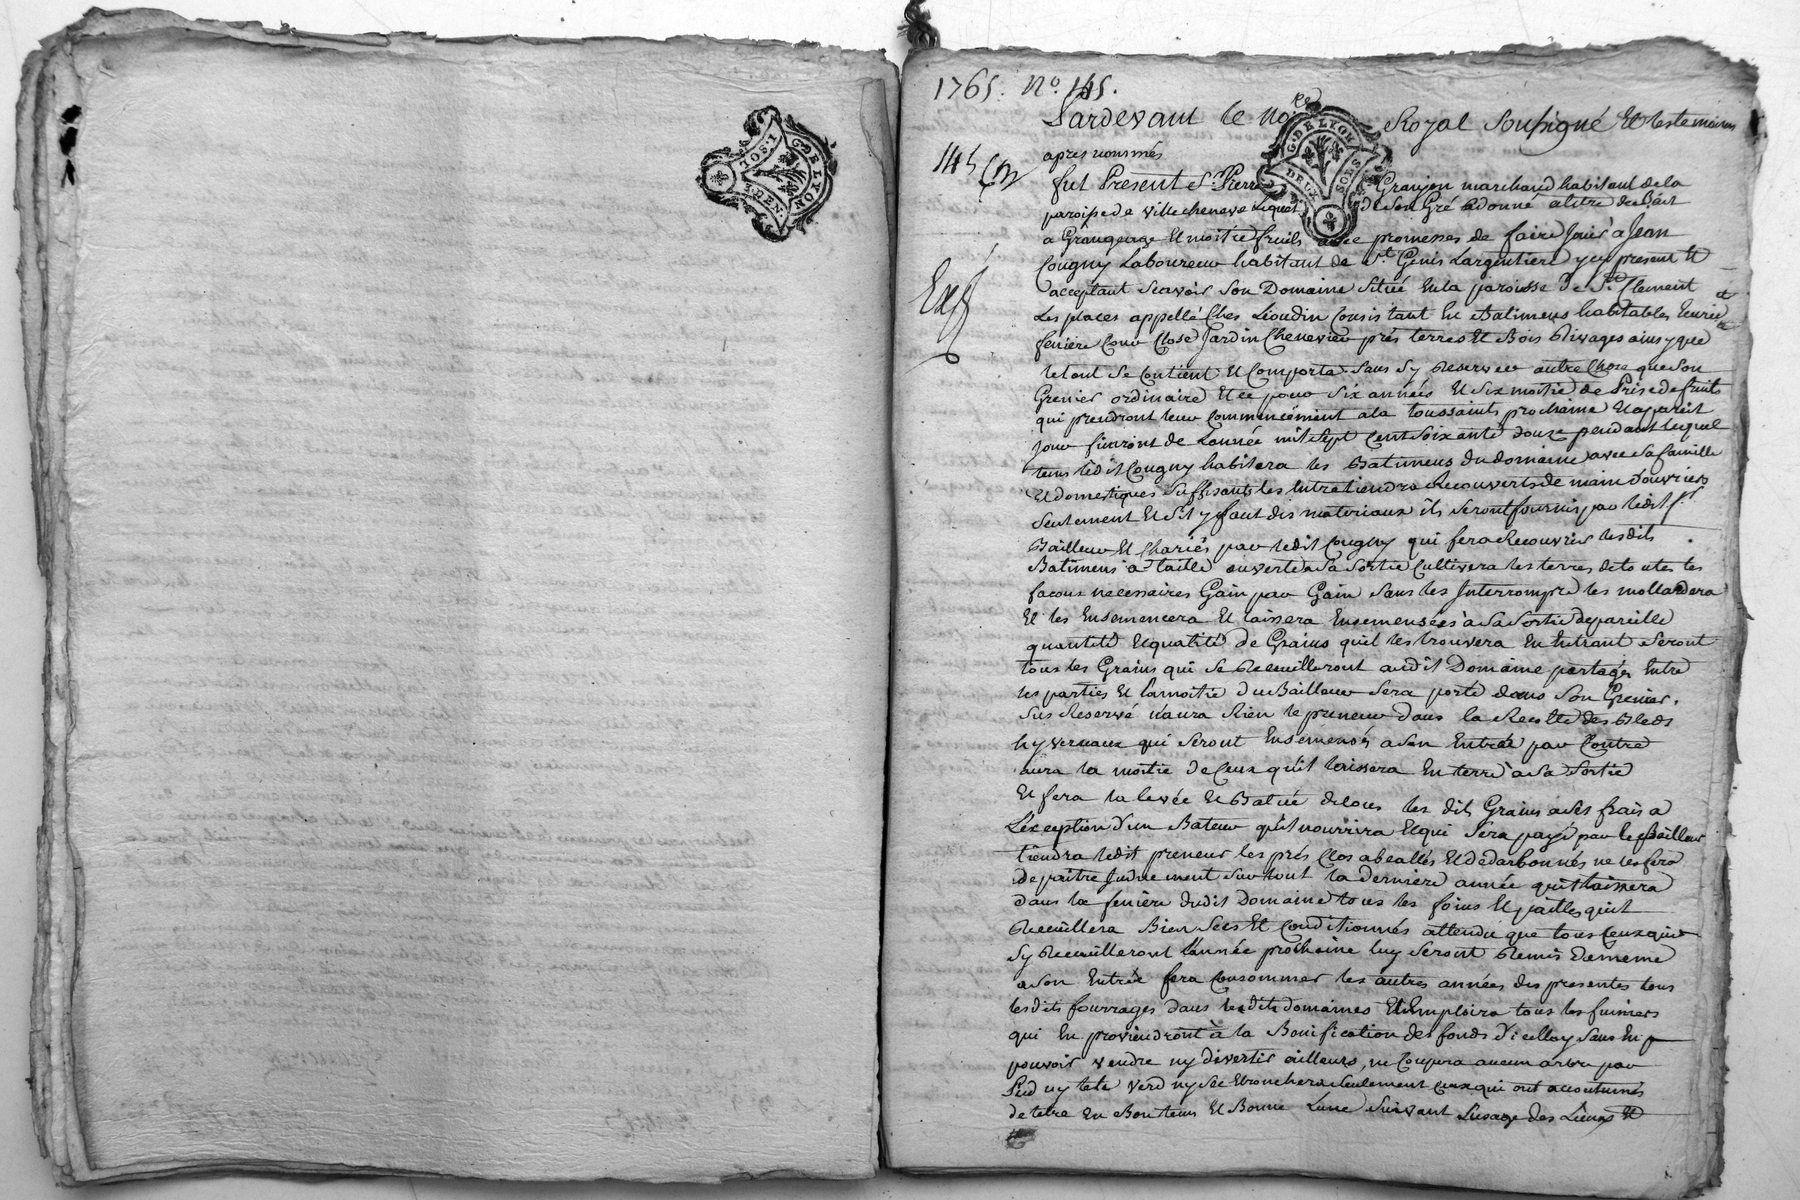 G. DE LYON
1. SOL.
GENER.
1765. No. 145.
Pardevant le No.re Royal Soussigné Et les temoins
G. DE LYON
DEUX
SOLS
145
apres nommés
fut Present Sr. Pierre Granjon marchand habitant de la
paroisse de Villecheneve Lequel de Son Gré a donné a titre de Bail
a Grangeage Et moitié fruits avec promesses de faire Jouir à Jean
Cougny Laboureur habitant de St. Genis Largentiere y cy present Et
Exp
acceptant Scavoir Son Domaine Situé En la paroisse De St. Clement
Les places appellé Ches Lioudin Consistant En Batimens habitables Ecurie
feniere Cour Close Jardin Cheneviere prés terres Et Bois Rivages ainsy que
le tout Se Contient Et Comporte Sans Sy Reserver autre Chose que Son
Grenier ordinaire Et ce pour Six années Et Six moitié de Prise de fruits
qui prendront leur Commencément a la toussaints prochaine Et a pareil
jour finiront de Lannée mil Sept Cent Soixante douze pendant lequel
tems ledit Cougny habitera les Batimens du domaine avec Sa famille
Et domestiques Suffisants les Entretiendra Recouverts de main D'ouvriers
Seulement Et S'il y faut des materiaux ils Seront fournis par ledit Sr.
Bailleur Et Chariés par ledit Cougny qui fera Recouvrir lesdits
Batimens a taille ouverte a Sa Sortie Cultivera les terres de toutes les
facons necessaires Gain par Gain Sans les Interrompre les mollardera
Et les Ensemencera Et laissera Ensemensées à Sa Sortie de pareille
quantité Et qualité de Grains quil les trouvera En Entrant Seront
tous les Grains qui Se Recuilleront audit Domaine partagés Entre
les parties Et la moitié du Bailleur Sera porté dans Son Grenier.
Sus Reservé n'aura Rien le preneur Dans la Recolte des Bleds
hyvernaux qui Seront Ensemensés a Son Entrée par Contre
aura la moitie de Ceux qu'il laissera En terre a Sa Sortie
Et fera la levée Et Batue de tous les dits Grains a Ses frais a
L'exception d'un Bateur qu'il nourrira Et qui Sera payé par le Bailleur
tiendra ledit preneur les prés Clos abeallés Et dedarbonnés ne les fera
de paitre Induement Sur tout la derniere année qu'il laissera
dans la feniere dudit Domaine tous les foins Et pailles quil
Recuillera Bien Secs Et Conditionnés attendu que tous Ceux qui
Sy Recuilleront L'année prochaine luy Seront Remis De meme
a Son Entrée fera Consommer les autres années des presentes tous
lesdits fourrages dans lesdits domaines Et Emploira tous les fumiers
qui En proviendront à la Bonification des fonds D'icelluy Sans En
pouvoir vendre ny divertir ailleurs, ne Coupera aucun arbre par
Pied ny tete verd ny Sec Ebranchera Seulement Ceux qui ont accoutumés
de letre En Bon tems Et Bonne Lune Suivant Lusage des Lieux Et